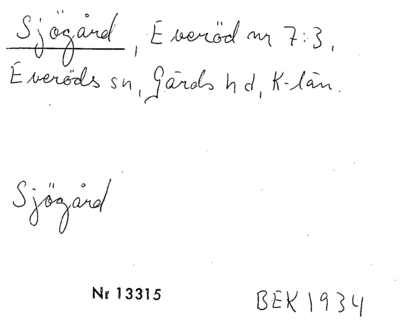 Sjögård, Everöd nr 7:3,
Everöds sn, Gärds hd, K-län.
Sjögård
Nr 13315
BEK 1934